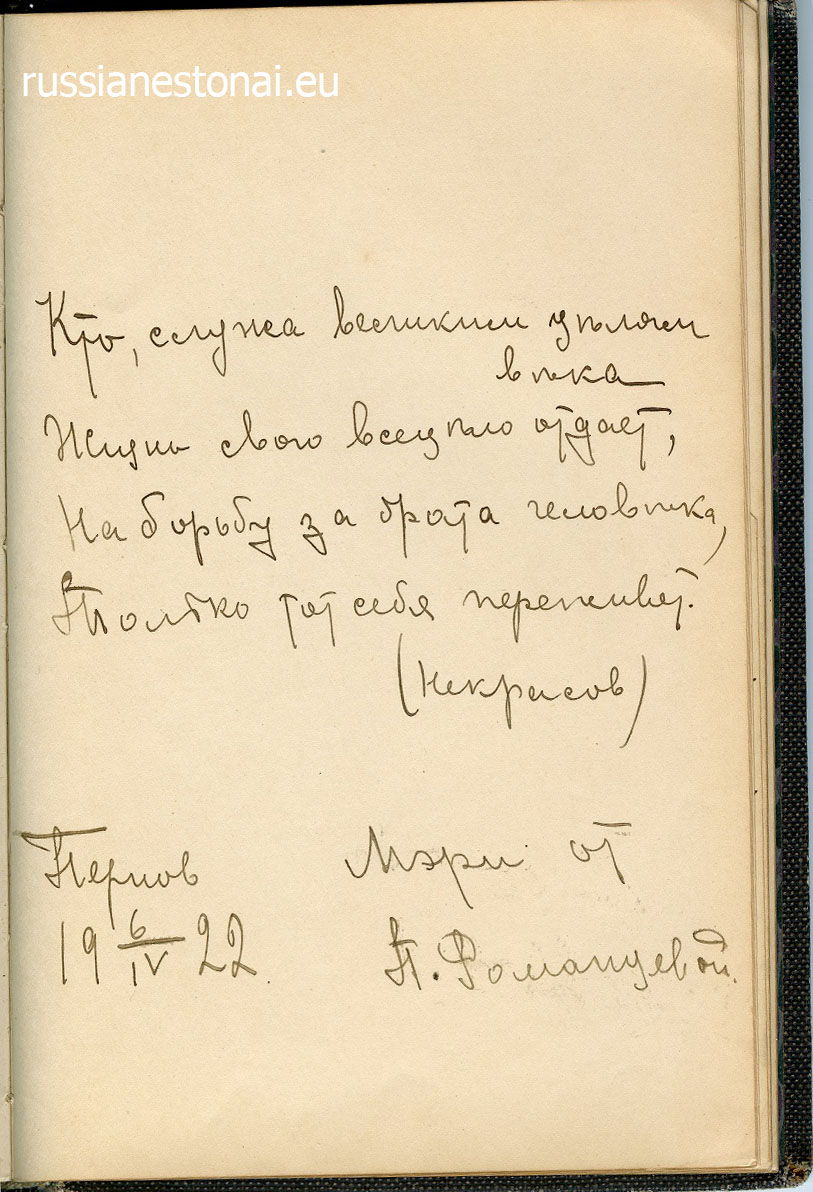 russianestonai.eu
Кто, служа великим цѣлям
вѣка
Жизнь свою всецѣло отдает,
На борьбу за брата человѣка,
Только тот себя переживет.
(Некрасов)
Пернов
19 6/IV 22.
Мэри от
П. Романцевой.